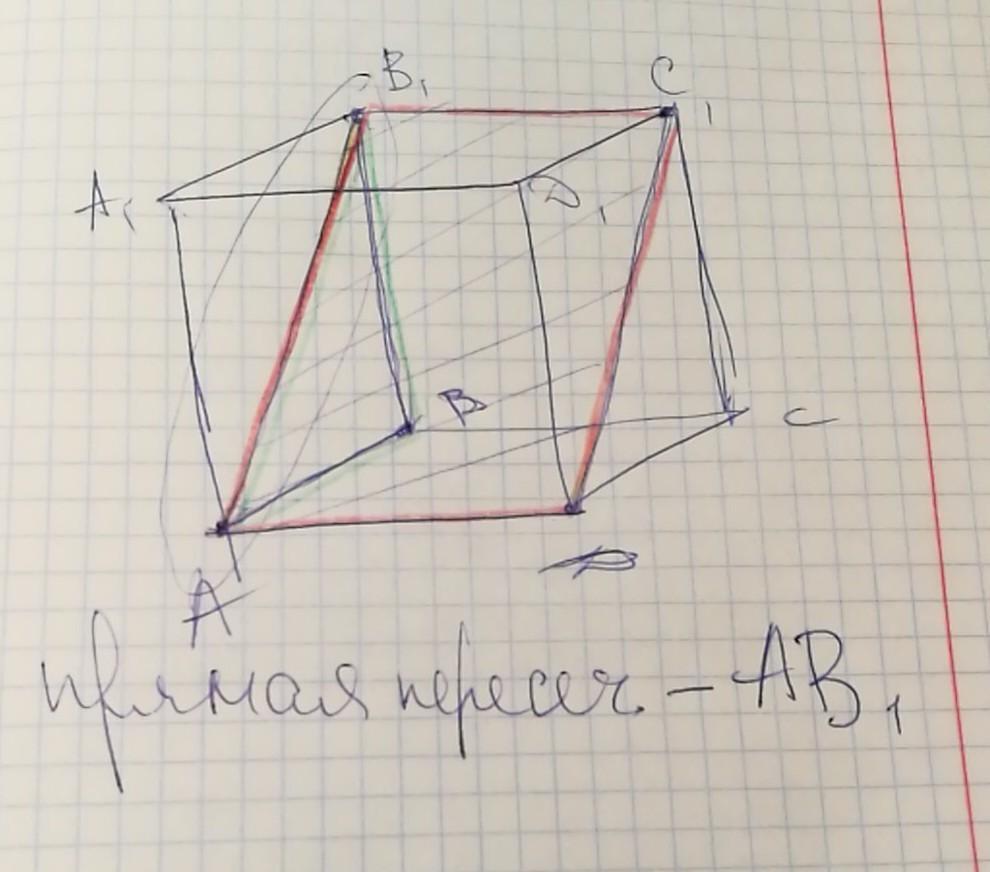 B₁
C₁
A₁
D₁
B
C
A
D
прямая пересеч. – AB₁